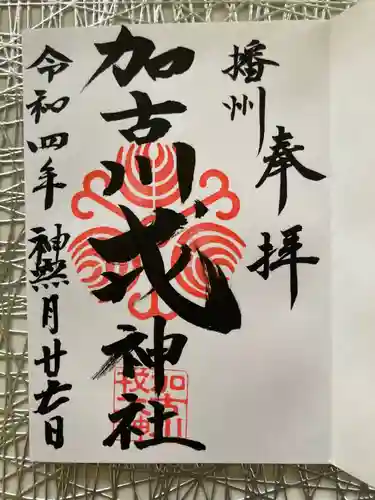 播州
奉拝
加古川戎神社
令和四年 神無月廿六日
加古川
戎神社